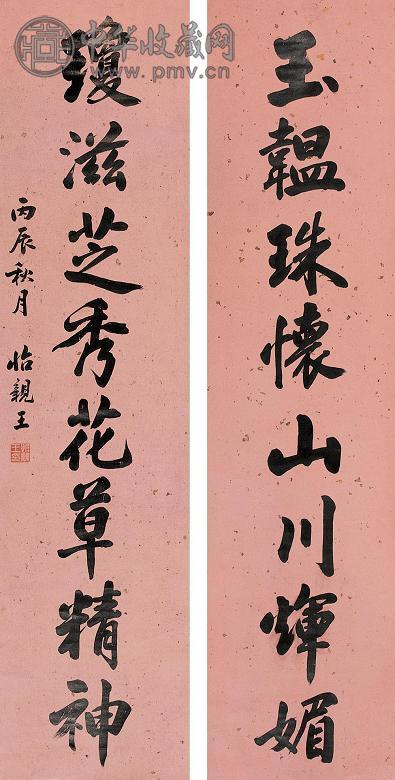 玉韞珠懷山川煇媚
瓊滋芝秀花草精神
丙辰秋月 怡親王
中华收藏网
www.pmv.cn